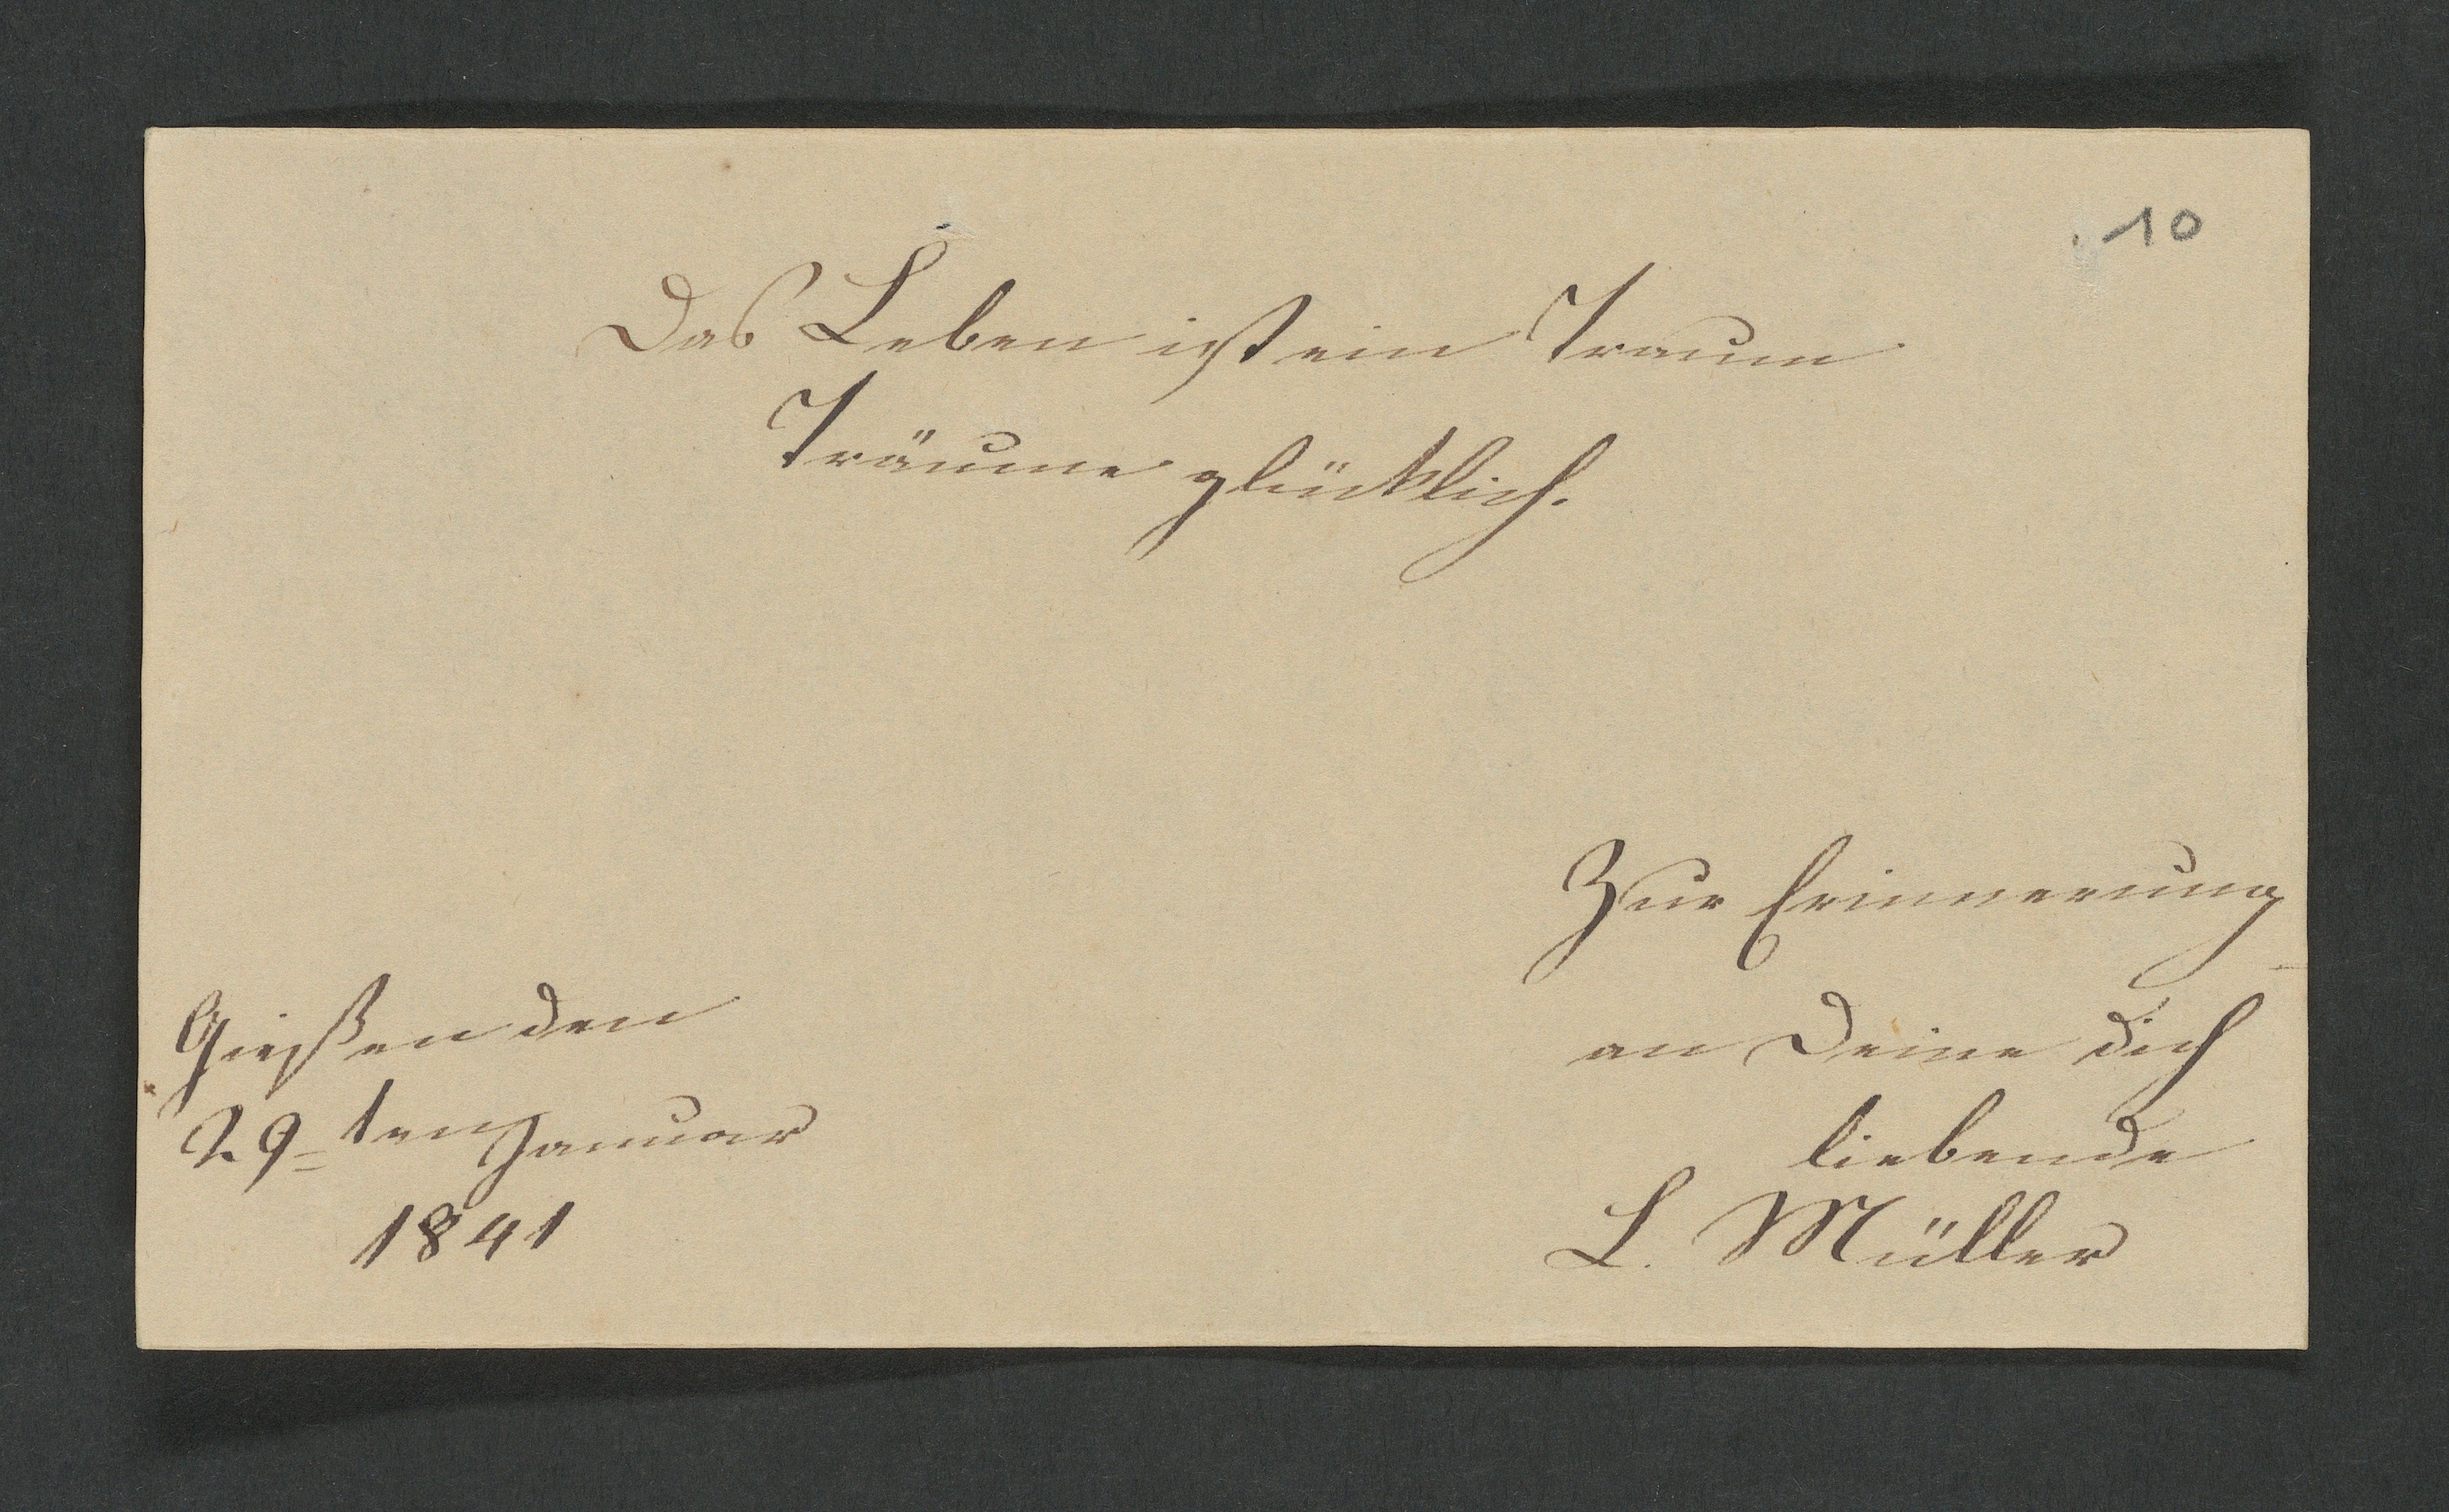 10
Das Leben ist ein Traum
Träume glücklich.
Zur Erinnerung
an Deine dich
liebende
L. Müller
Gießen den
29ten Januar
1841